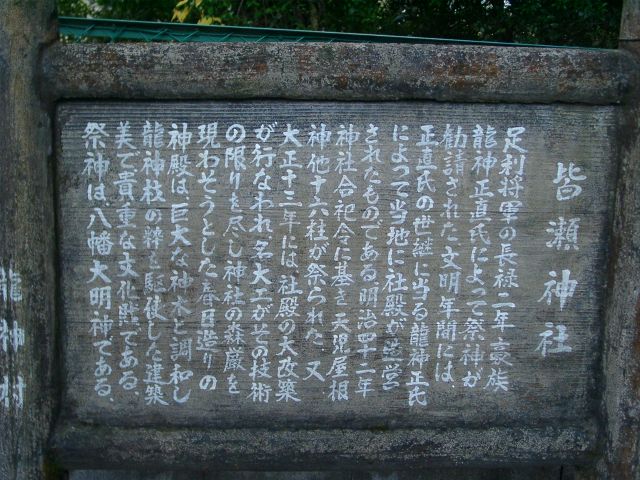 皆瀬神社
足利将軍の長禄二年豪族
龍神正直氏によって祭神が
勧請された文明年間には、
正直氏の世継に当る龍神正氏
によって当地に社殿が造営
されたものである明治四十二年
神社合祀令に基き天児屋根
神他十六柱が祭られた、又
大正十三年には、社殿の大改築
が行なわれ名大工がその技術
の限りを尽し神社の森厳を
現わそうとした春日造りの
神殿は、巨大な神木と調和し
龍神技の粋を駆使した建築
美で貴重な文化財である、
祭神は、八幡大明神である、
龍神村